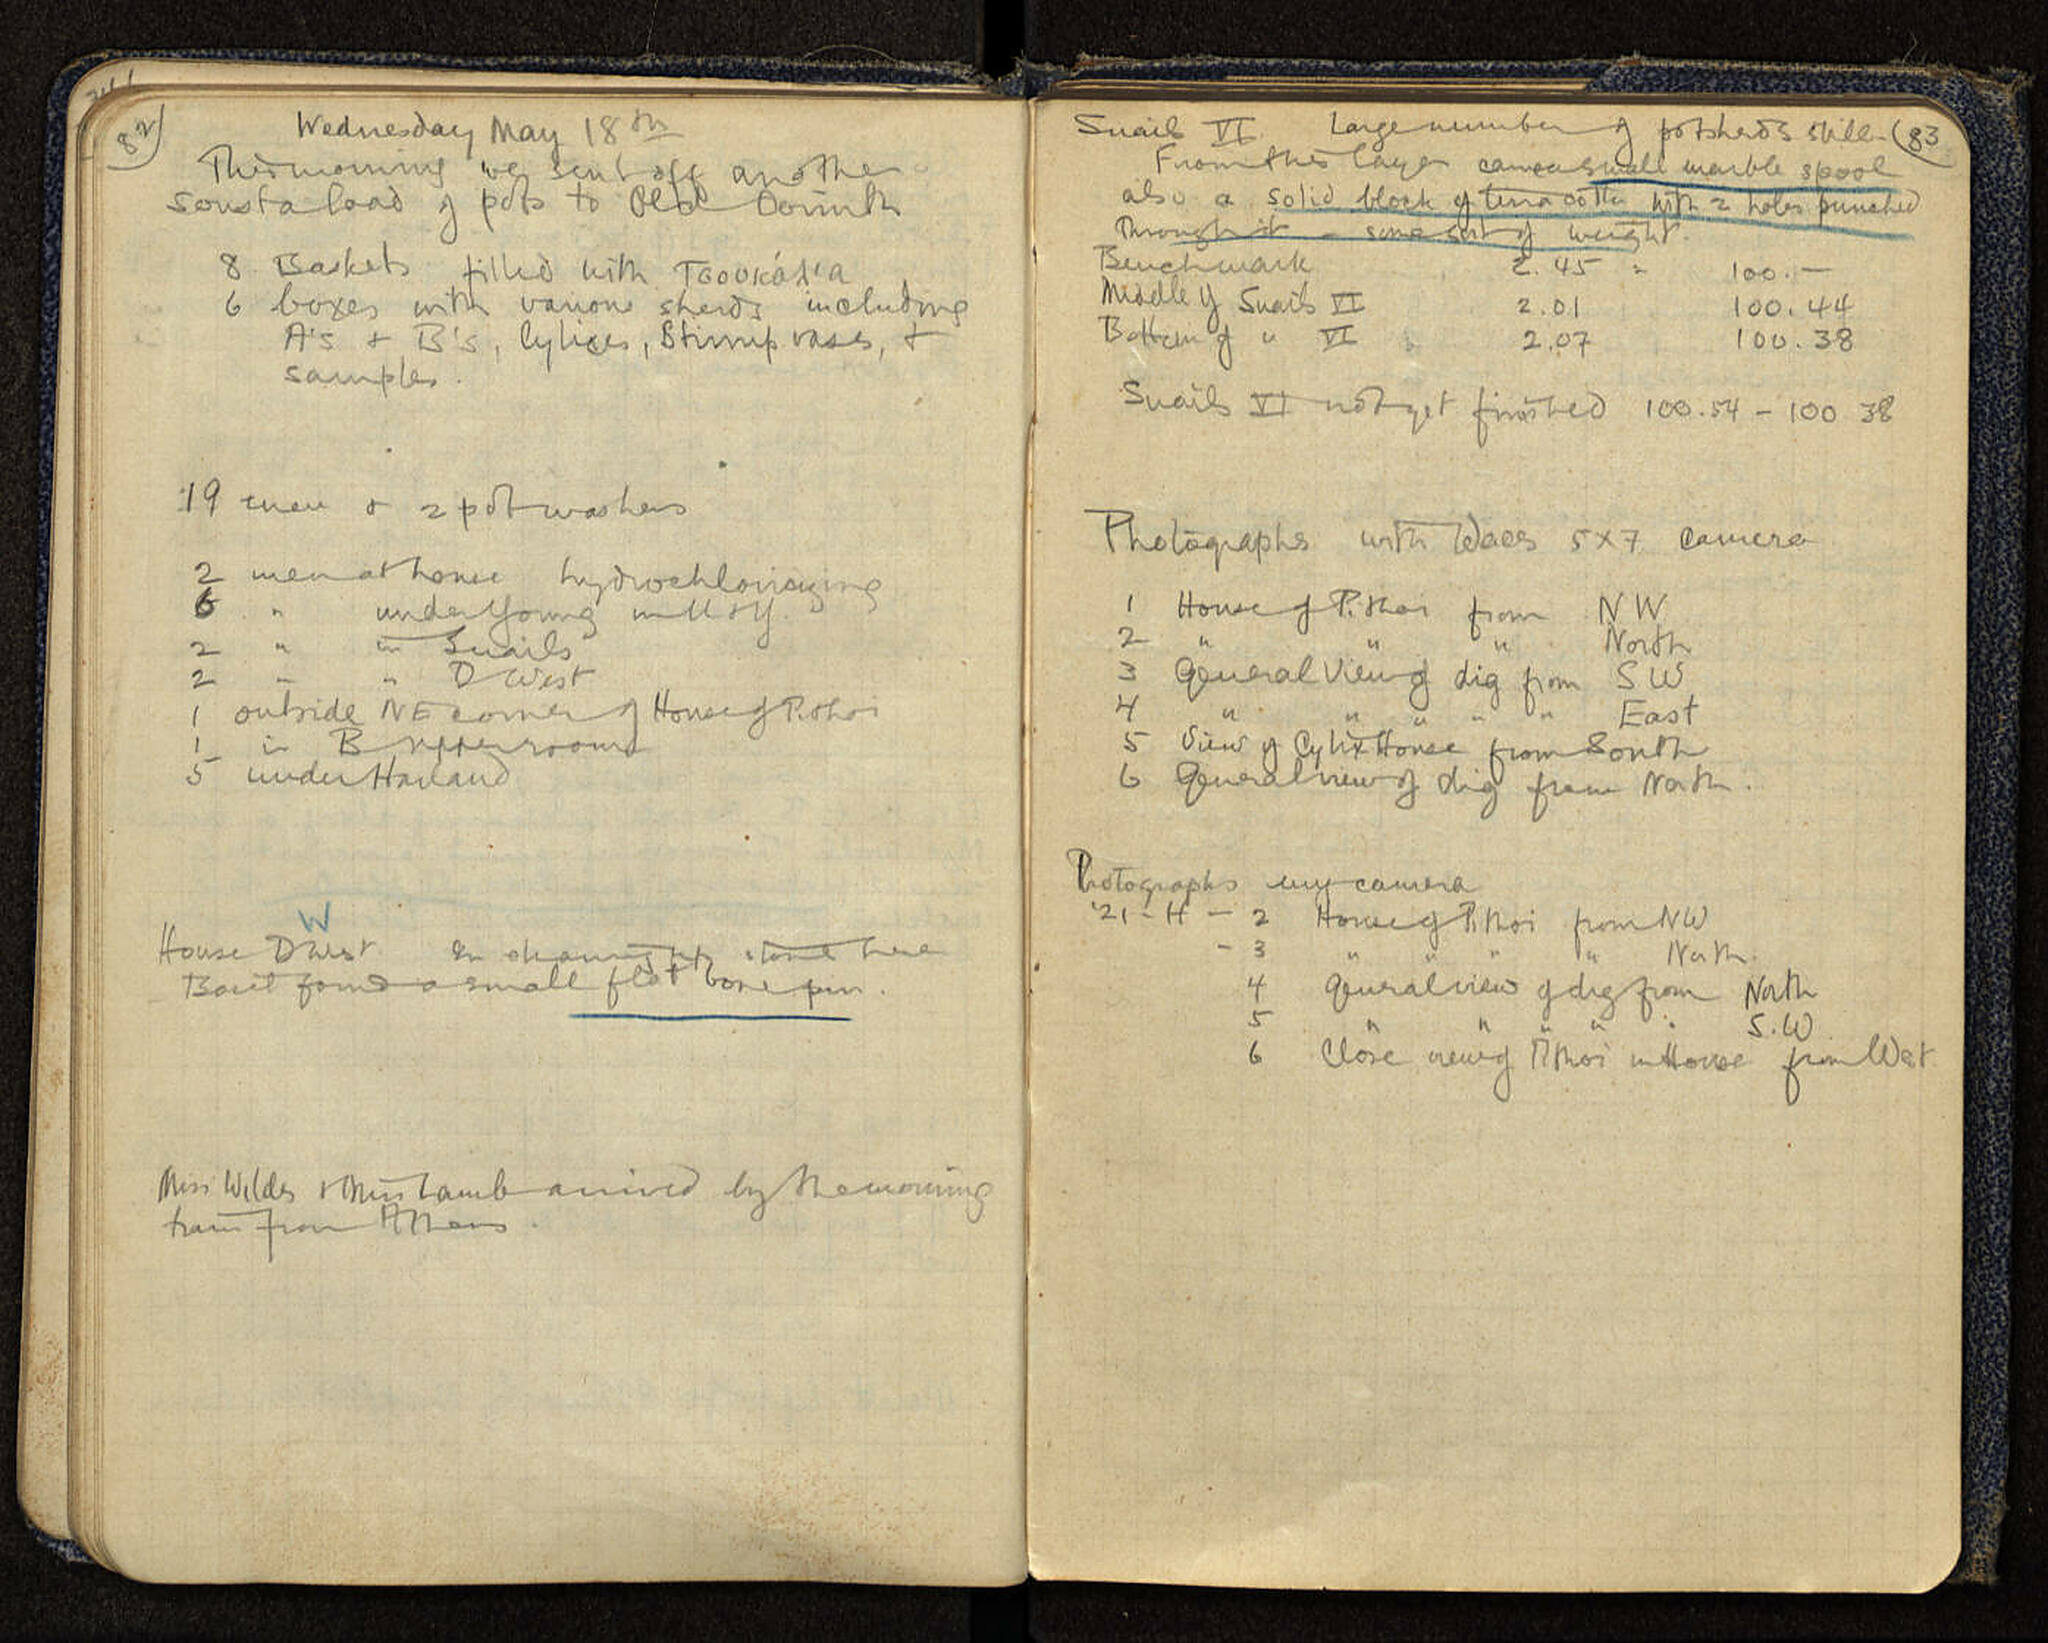 82
Wednesday May 18th
This morning we sent off another
sousta load of pots to Old Corinth
8 Baskets filled with τσουκάλια
6 boxes with various sherds including
A's + B's, Cylices, Stirrup vases, +
samples.
19 men & 2 potwashers
2 men at house hydrochlorizing
6 " under Young in
2 " in Snails
2 " " D West
1 outside NE corner of House of Pithoi
1 in B upper room
5 under Harland
W
House D West. In cleaning up stones here
found a small flat bone pin.
Miss Wilder & Miss Lamb arrived by the morning
train from Athens.
83
Snails VI Large number of potsherds still
From this layer came a small marble spool
also a solid block of terra cotta with 2 holes punched
through it - some sort of weight.
Benchmark 2.45 = 100.—
Middle of Snails VI 2.01 100.44
Bottom of " VI 2.07 100.38
Snails VI not yet finished 100.54 - 100 38
Photographs with Waces 5x7 camera
1 House of Pithoi from NW
2 " " " North
3 General View of dig from SW
4 " " " " " East
5 View of Cylix House from South
6 General view of dig from North.
Photographs my camera
'21 - H - 2 House of Pithoi from NW
- 3 " " " " North.
4 General view of dig from North
5 " " " " " S.W.
6 Close view of Pithoi in House from West